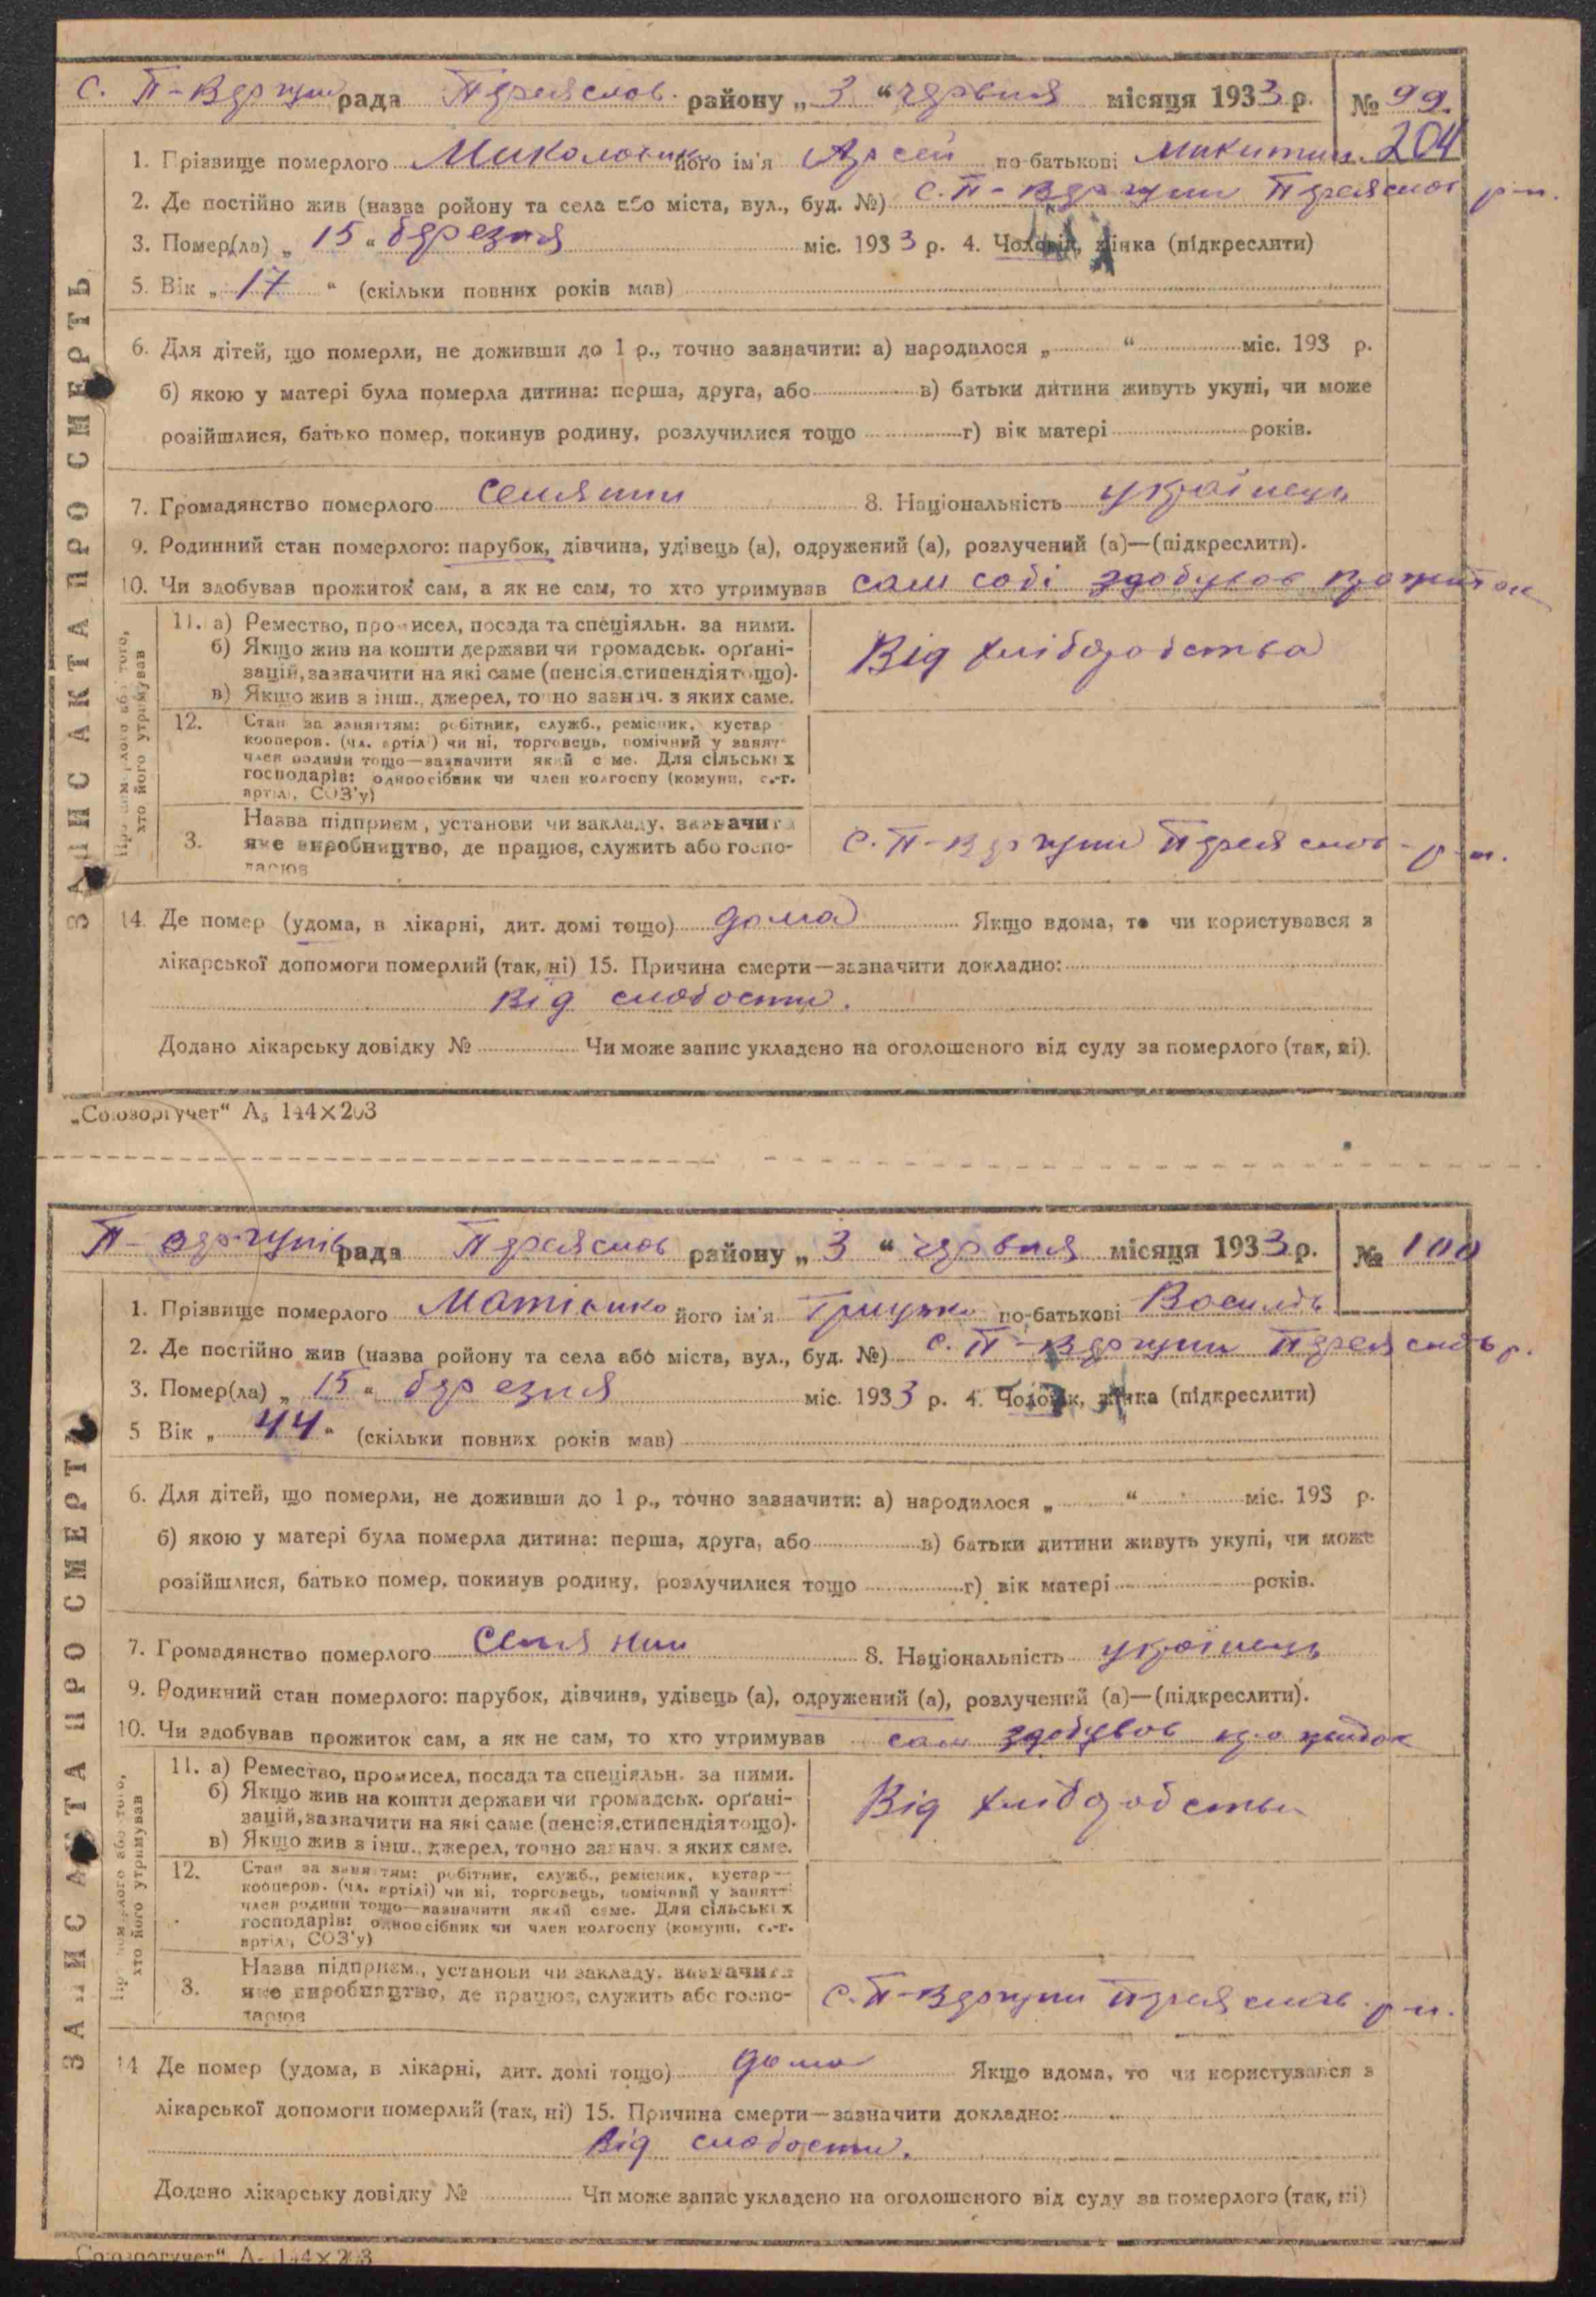 с. П-Вергуни рада Переяслов. району „ 3 “ червня місяця 1933 р. № 99.
204
1. Прізвище померлого його ім'я Арсей по-батькові Микитин.
2. Де постійно жив (назва ройону та села або міста, вул., буд. №) С. П-Вергуни Переяслов р-н.
3. Помер(ла) „ 15 “ березня міс. 1933 р. 4. Чоловік, жінка (підкреслити)
5. Вік „ 17 “ (скільки повних років мав)
6. Для дітей, що померли, не доживши до 1 р., точно зазначити: а) народилося „ “ міс. 193 р.
б) якою у матері була померла дитина: перша, друга, або в) батьки дитини живуть укупі, чи може
розійшлися, батько помер, покинув родину, розлучилися тощо г) вік матері років.
7. Громадянство померлого Селянин 8. Національність українець
9. Родинний стан померлого: парубок, дівчина, удівець (а), одружений (а), розлучений (а)—(підкреслити).
10. Чи здобував прожиток сам, а як не сам, то хто утримував сам собі здобував прожиток
11. а) Ремество, промисел, посада та спеціяльн. за ними.
б) Якщо жив на кошти держави чи громадськ. орґані-
зацій, зазначити на які саме (пенсія, стипендія тощо).
в) Якщо жив з інш., джерел, точно зазнач. з яких саме.
Від хліборобства
12. Стан за заняттям: робітник, служб., ремісник, кустар
кооперов. (чл. артілі) чи ні, торговець, помічний у занятт
член родини тощо—зазначити який саме. Для сільських
господарів: одноосібник чи член колгоспу (комуни, с.-г.
артілі, СОЗ'у)
3. Назва підприєм., установи чи закладу, зазначити
яке виробництво, де працює, служить або госпо-
дарює
С. П-Вергуни Переяслов р-н.
14. Де помер (удома, в лікарні, дит. домі тощо) дома Якщо вдома, то чи користувався з
лікарської допомоги померлий (так, ні) 15. Причина смерти—зазначити докладно:
Від слабости.
Додано лікарську довідку № Чи може запис укладено на оголошеного від суду за померлого (так, ні).
ЗАПИС АКТА ПРО СМЕРТЬ
„Союзоргучет“ А₅ 144×203
П-Вергунів рада Переяслов району „ 3 “ червня місяця 1933 р. № 100
1. Прізвище померлого його ім'я Грицько по-батькові Василів
2. Де постійно жив (назва ройону та села або міста, вул., буд. №) С. П-Вергуни Переяслов р.
3. Помер(ла) „ 15 “ березня міс. 1933 р. 4. Чоловік, жінка (підкреслити)
5 Вік „ 44 “ (скільки повних років мав)
6. Для дітей, що померли, не доживши до 1 р., точно зазначити: а) народилося „ “ міс. 193 р.
б) якою у матері була померла дитина: перша, друга, або в) батьки дитини живуть укупі, чи може
розійшлися, батько помер, покинув родину, розлучилися тощо г) вік матері років.
7. Громадянство померлого Селянин 8. Національність українець
9. Родинний стан померлого: парубок, дівчина, удівець (а), одружений (а), розлучений (а)—(підкреслити).
10. Чи здобував прожиток сам, а як не сам, то хто утримував сам здобував
11. а) Ремество, промисел, посада та спеціяльн. за ними.
б) Якщо жив на кошти держави чи громадськ. орґані-
зацій, зазначити на які саме (пенсія, стипендія тощо).
в) Якщо жив з інш., джерел, точно зазнач. з яких саме.
Від хліборобства
12. Стан за заняттям: робітник, служб., ремісник, кустар—
кооперов. (чл. артілі) чи ні, торговець, помічний у занятт
член родини тощо—зазначити який саме. Для сільських
господарів: одноосібник чи член колгоспу (комуни, с.-г.
артілі, СОЗ'у)
3. Назва підприєм., установи чи закладу, зазначити
яке виробництво, де працює, служить або госпо-
дарює
С. П-Вергуни Переяслов. р-н.
14 Де помер (удома, в лікарні, дит. домі тощо) дома Якщо вдома, то чи користувався з
лікарської допомоги померлий (так, ні) 15. Причина смерти—зазначити докладно:
Від слабости.
Додано лікарську довідку № Чи може запис укладено на оголошеного від суду за померлого (так, ні)
ЗАПИС АКТА ПРО СМЕРТЬ
„Союзоргучет“ А₅ 144×203